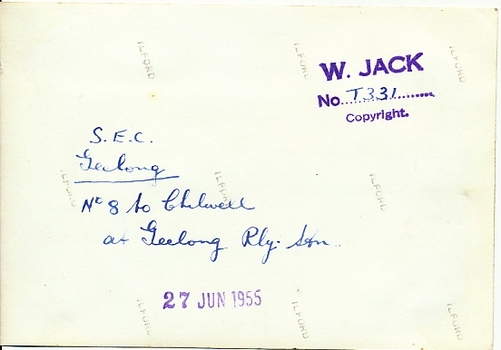 ILFORD
ILFORD
ILFORD
W. JACK
No. T331
Copyright.
S.E.C.
Geelong
ILFORD
ILFORD
ILFORD
No 8 to Chilwell
at Geelong Rly. Stn.
27 JUN 1955
ILFORD
ILFORD
ILFORD